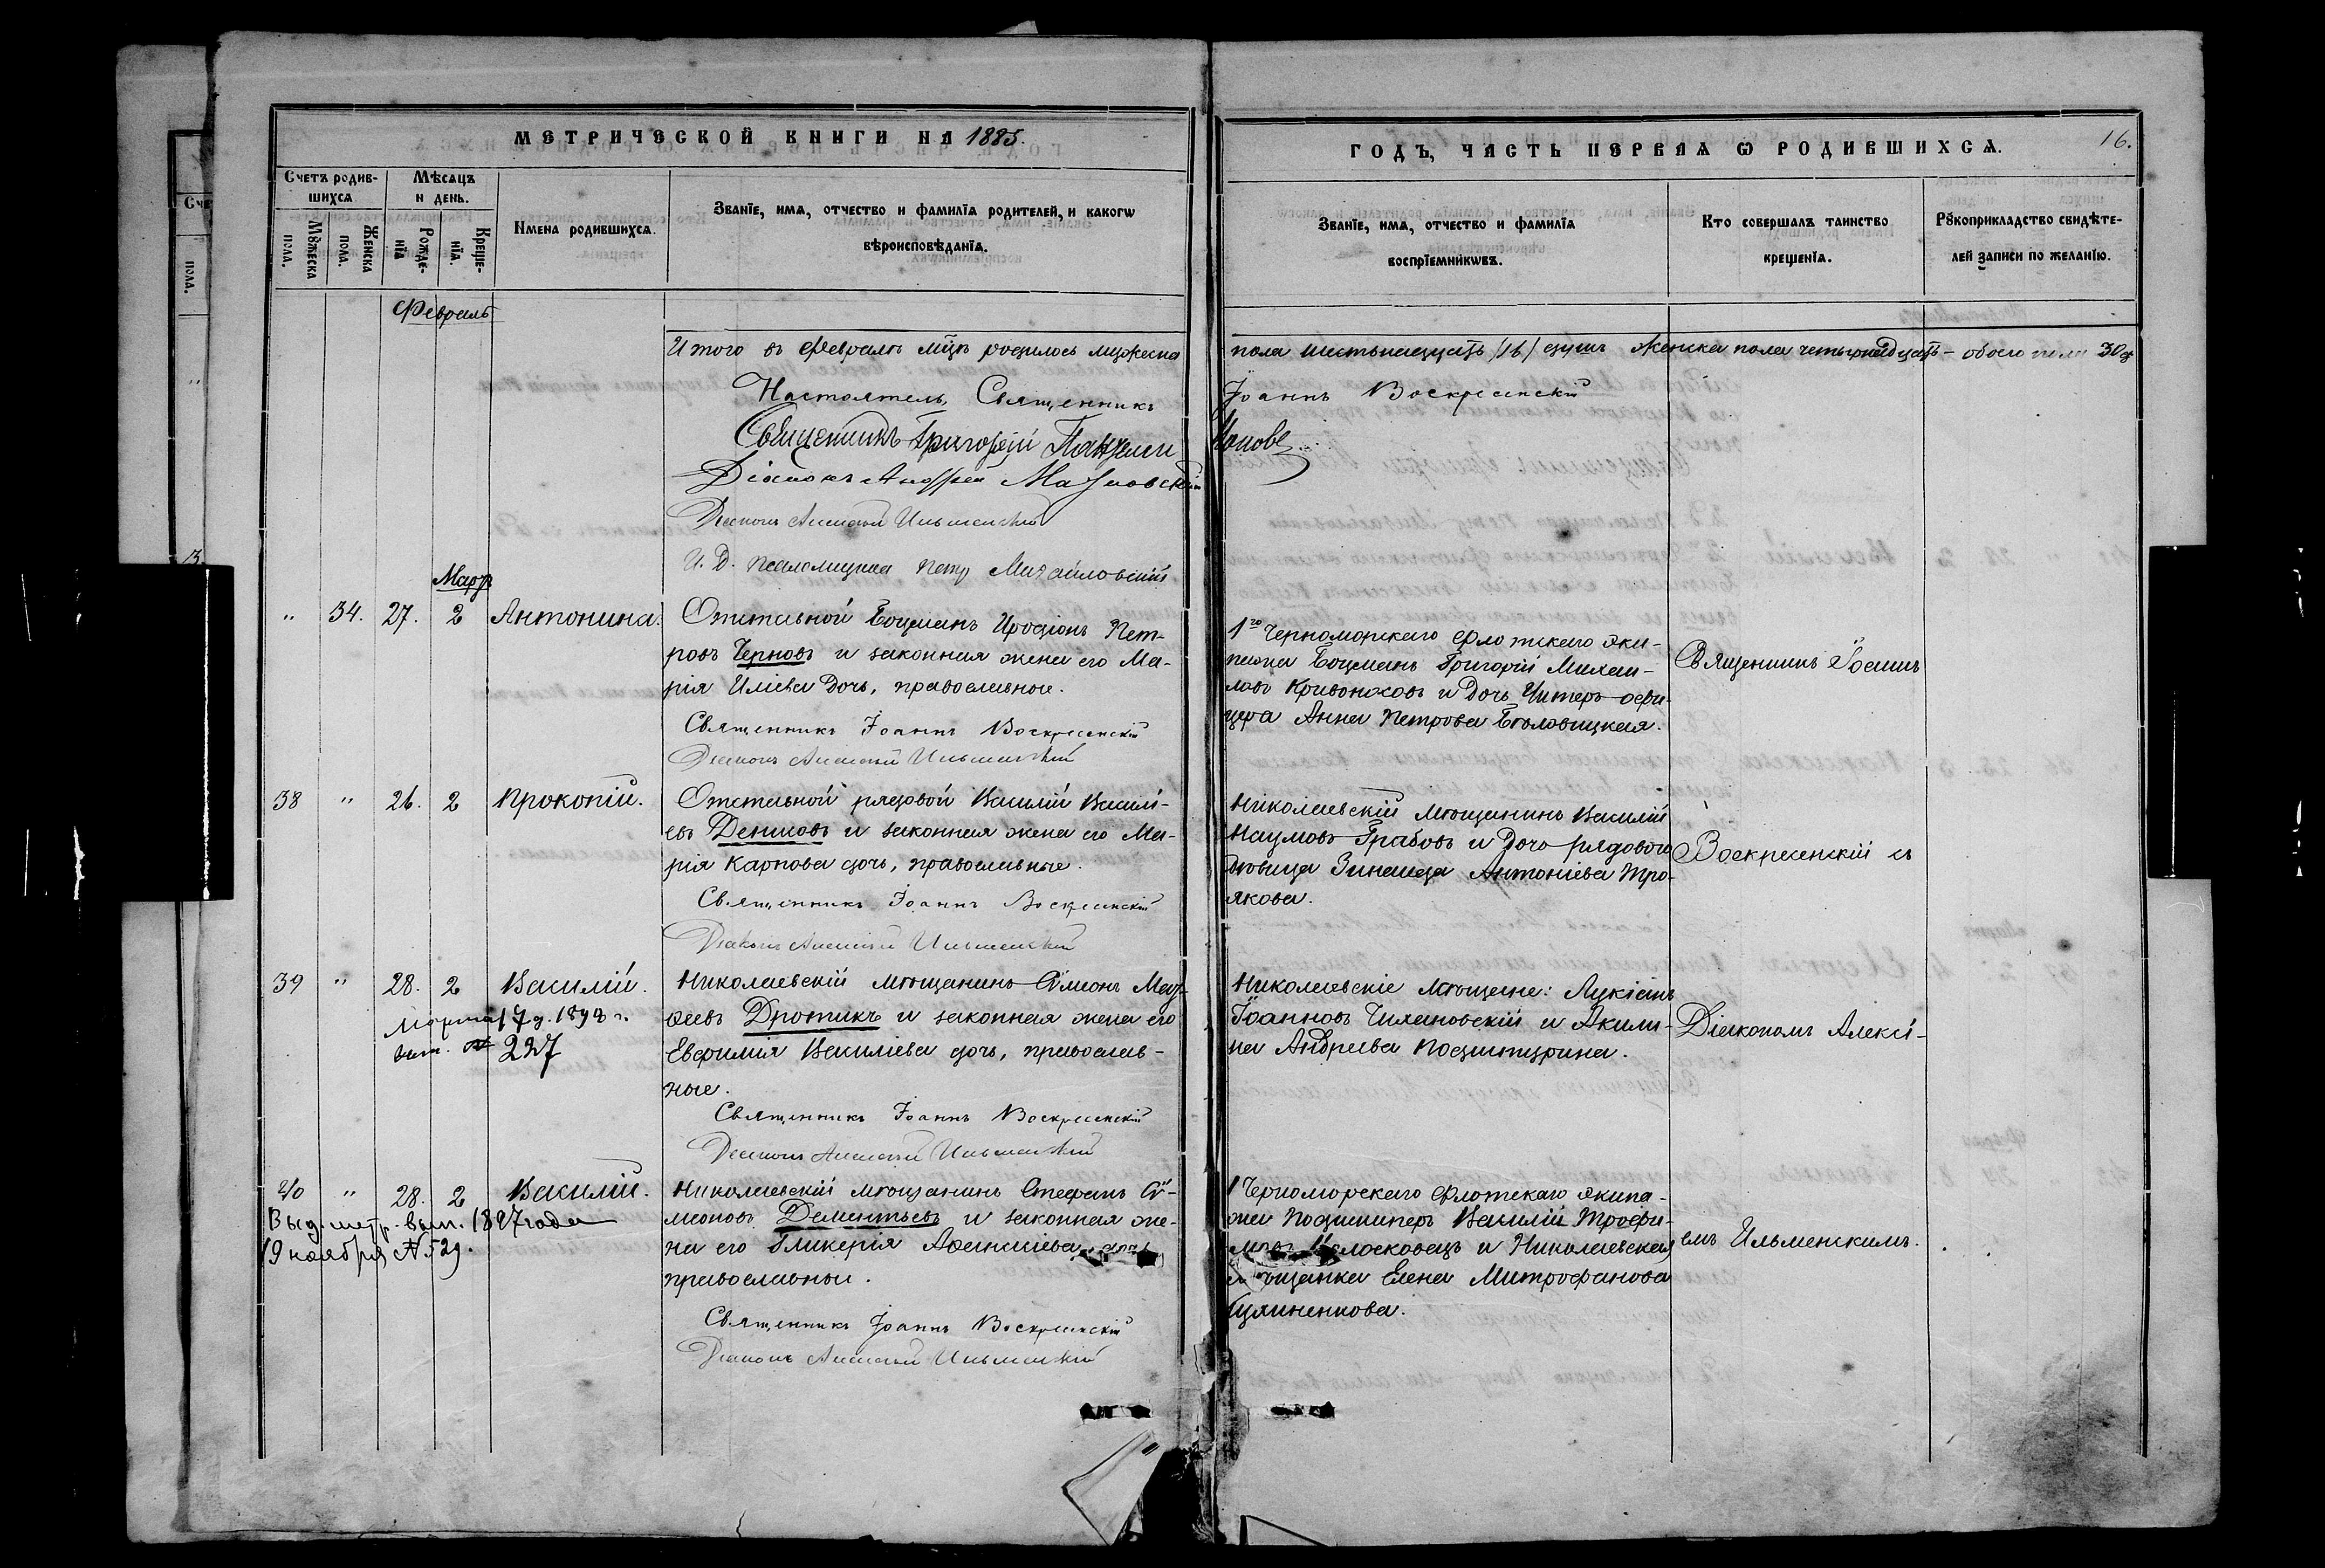 МЕТРИЧЕСКОЙ КНИГИ НА 1885.
ГОДЪ, ЧАСТЬ ПЕРВАЯ Ѡ РОДИВШИХСѦ.
16.
Счетъ родив-
шихсѧ
Мѣсѧцъ
и день.
Мꙋжеска пола.
Женска пола.
Рожде-
нїѧ
Креще-
нїѧ.
Имена родившихсѧ.
Званїе, имѧ, отчество и фамилїѧ родителей, и какогѡ
вѣроисповѣданїѧ.
Званїе, имѧ, отчество и фамилїѧ
воспрїемникѡвъ.
Кто совершалъ таинство
крещенїѧ.
Рꙋкоприкладство свидѣте-
лей записи по желанїю.
Февраль
Итого въ Февралѣ мцѣ родилось мужеска
пола шестьнадцать /16/ душъ Женска пола четырнадцать – обоего пола 30 д
Настоятель, Священникъ
Іоаннъ Воскресенскій
Священникъ Григорій
Діаконъ Андрей
Діаконъ Алексѣй Ильменскій
И. Д. Псаломщика Петр Михайловскій
Мартъ
" 34. 27. 2 Антонина.
Отставной Боцманъ Иродіонъ Пет-
ровъ Черновъ и законная жена его Ма-
рія Иліева дочь, православные.
Священникъ Іоаннъ Воскресенскій
Діаконъ Алексѣй Ильменскій
1го Черноморскаго флотскаго эки-
пажа Боцманъ Григорій Михаи-
ловъ Кривоносовъ и дочь Унтеръ-офи-
цера Анна Петрова
Священникъ Іоаннъ
38 " 26. 2 Прокопій.
Отставной рядовой Василій Василі-
евъ Денисовъ и законная жена его Ма-
рія Карпова дочь, православные.
Священникъ Іоаннъ Воскресенскій
Діаконъ Алексѣй Ильменскій
Николаевскій мѣщанинъ Василій
Наумовъ Грабовъ и дочь рядового
дѣвица Зинаида Антоніева Тро-
якова.
Воскресенскій съ
39 " 28. 2 Василій.
Марта 17 д. 1898 г.
вып. № 227
Николаевскій мѣщанинъ Сѵмеонъ
Дротикъ и законная жена его
Евфимія Василіева дочь, православ-
ные.
Священникъ Іоаннъ Воскресенскій
Діаконъ Алексѣй Ильменскій
Николаевскіе мѣщане: Лукіанъ
Іоанновъ Чихановскій и Акили-
на Андреева
Діакономъ Алексі-
40 " 28. 2 Василій.
Выд. метр. вып. 1897 года
19 ноября № 529.
Николаевскій мѣщанинъ Стефанъ Сѵ-
меоновъ Дементьевъ и законная же-
на его Гликерія Аѳанасіева дочь
православные.
Священникъ Іоаннъ Воскресенскій
Діаконъ Алексѣй Ильменскій
1 Черноморскаго флотскаго экипа-
жа Подшкиперъ Василій Трофи-
мовъ и Николаевская
мѣщанка Елена Митрофанова
емъ Ильменскимъ.